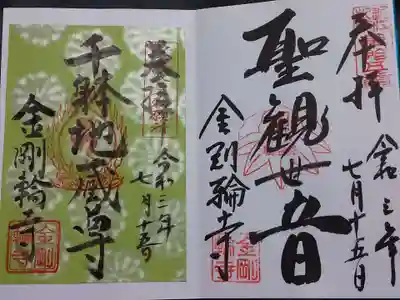 奉拝
令和三年
七月十五日
聖観世音
金剛輪寺
奉拝
令和三年
七月十五日
千躰地蔵尊
金剛輪寺
金剛
輪寺
金剛
輪寺